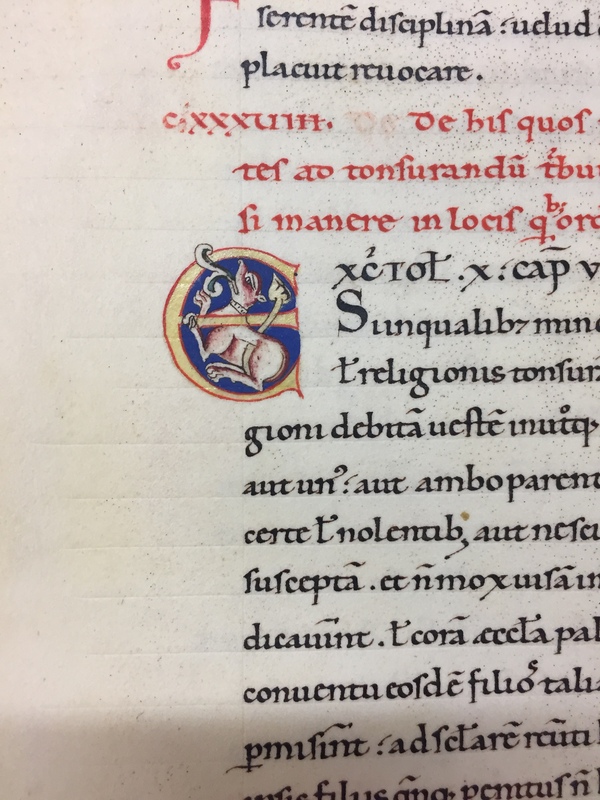 serentē disciplinā : uel ud
placuit reuocare .
cixxxuiiii. De his quos
tes ad tonsurandū t̄bu
si manere in locis q̄b; ord
Exc̄ Toł . x . : cap̄ v
Si in qualib; min
ł religionis tonsur
gioni debitā uestē in
aut un᾿ : aut ambo parent
certe ł nolentib; aut nesci
susceptā . et n̄ mox uisā in
dicauūnt . ł corā æccła pal
conuentu eosdē filios tali
pmisint̄ : ad scłarē reūti
ipsis filius penitus n̄